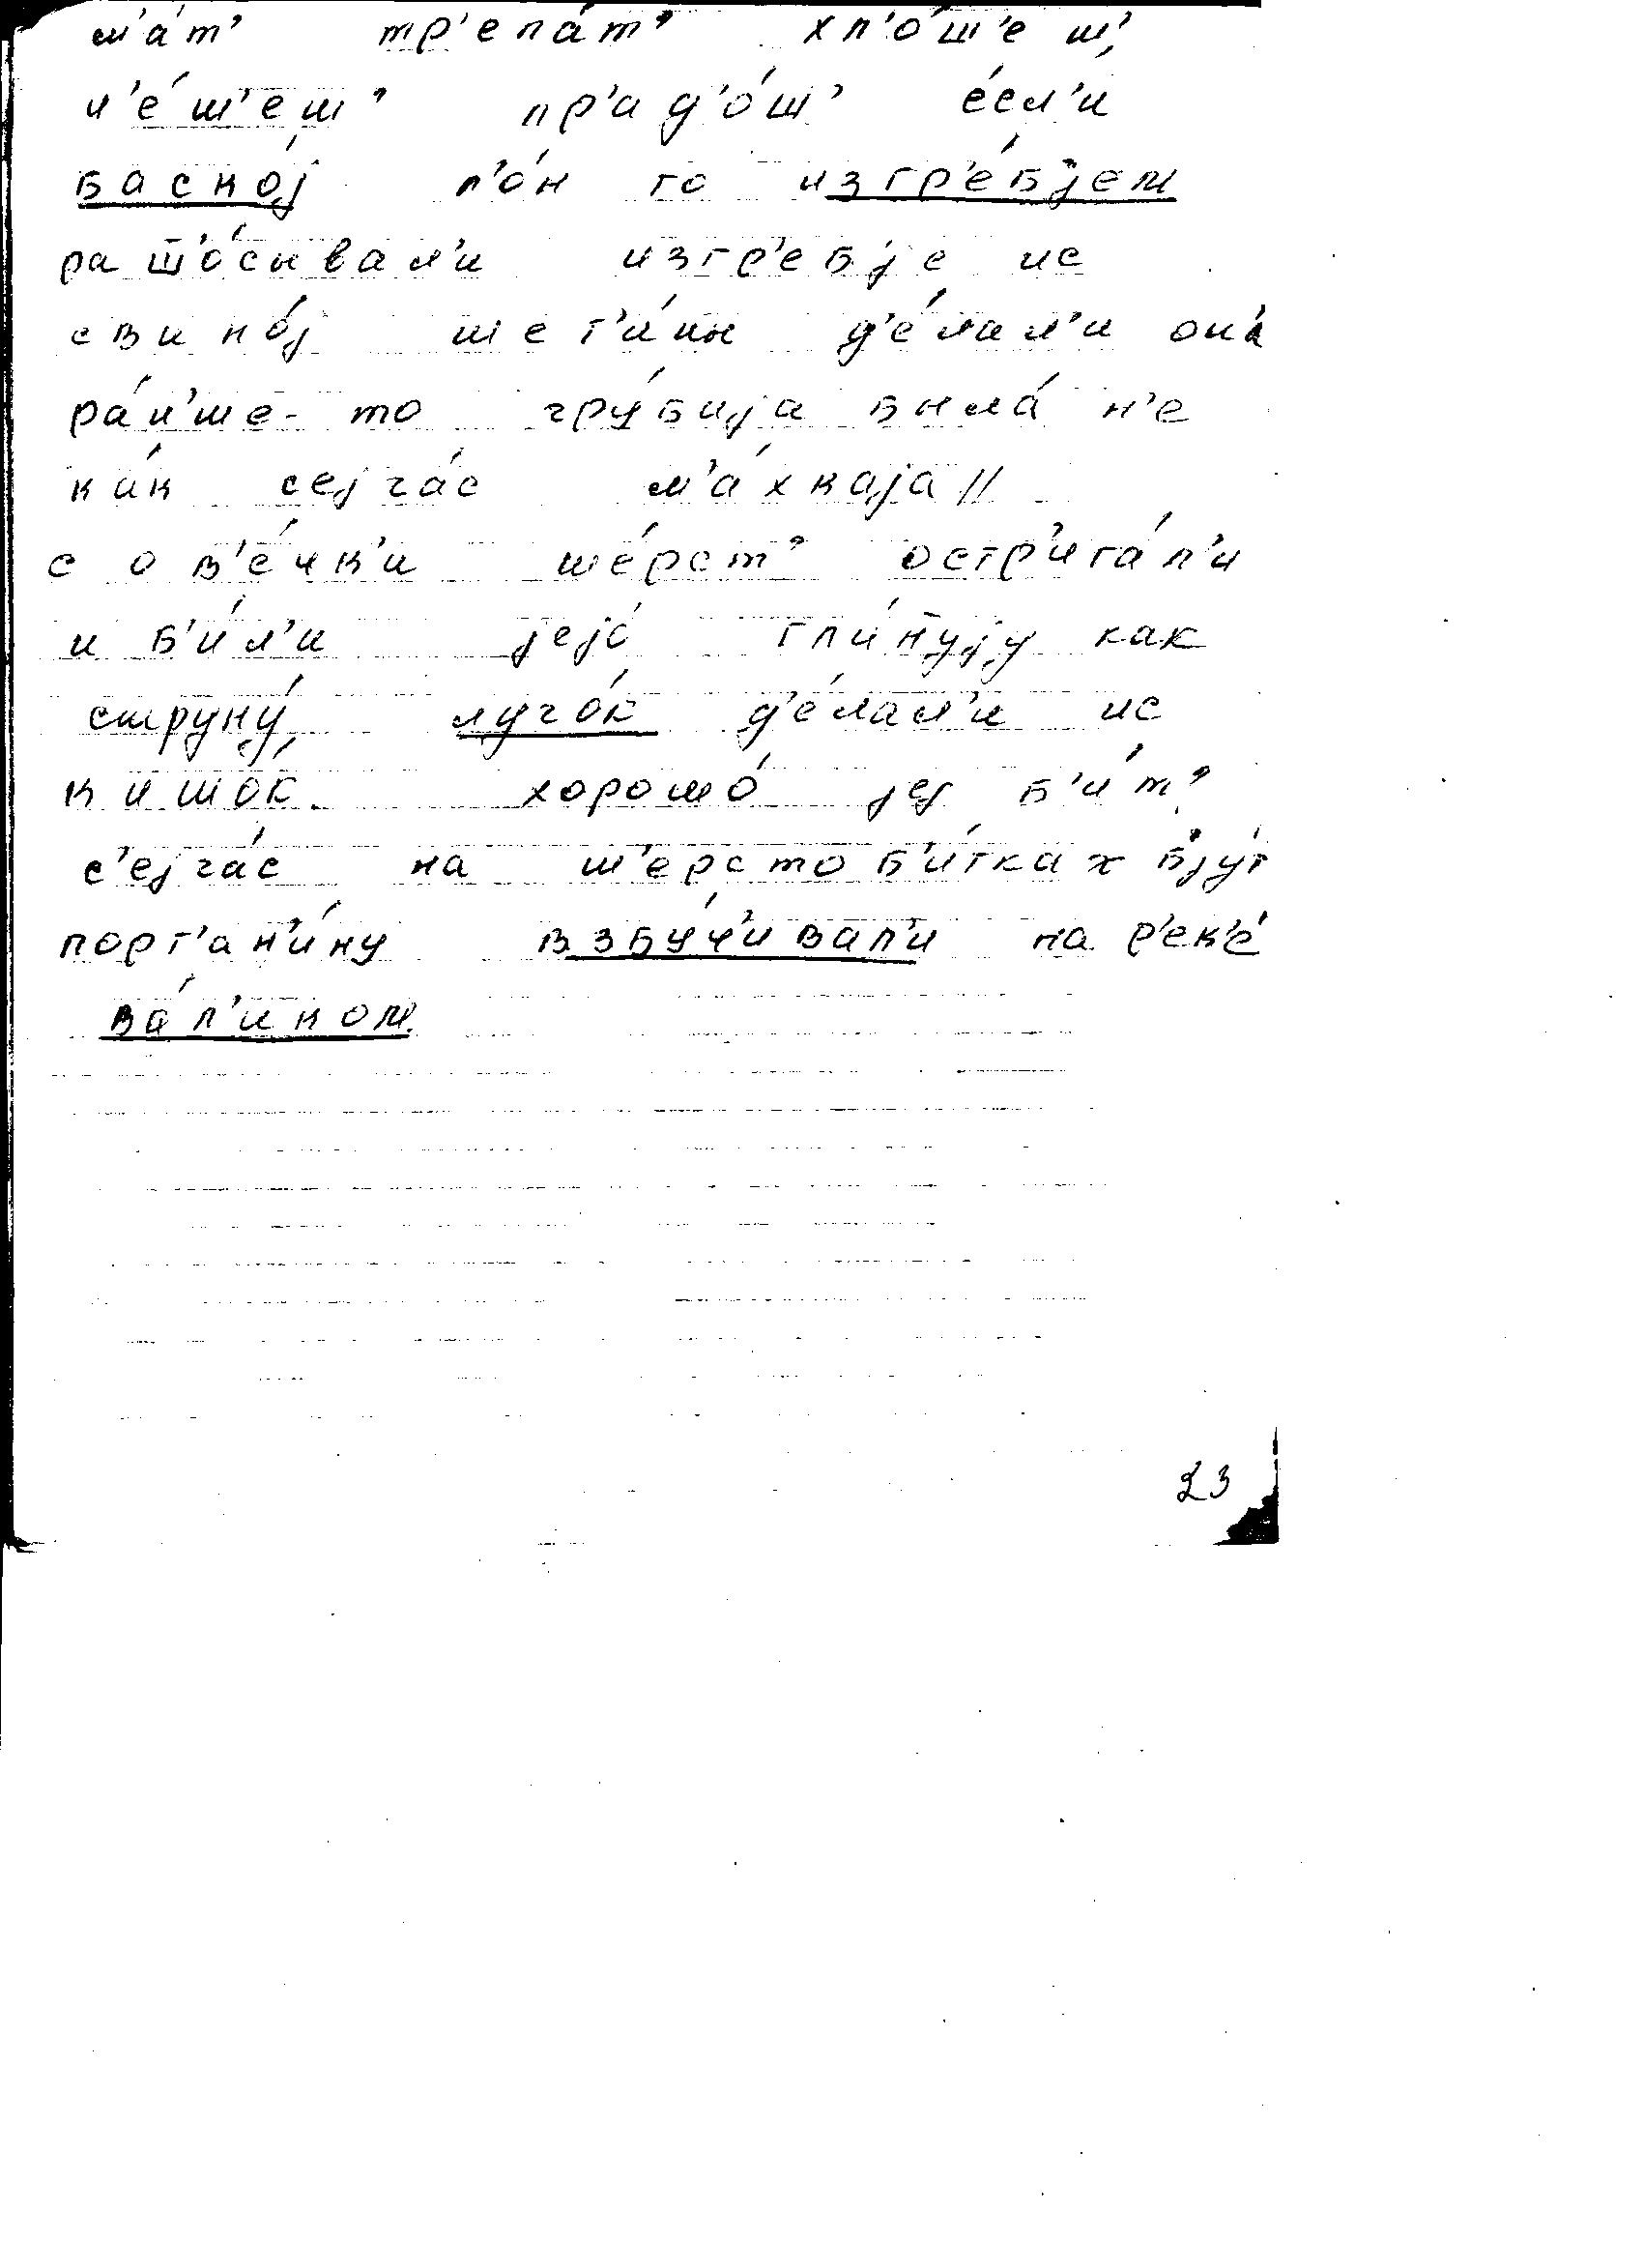 м'а́т' тр'епа́т' хл'о́ш'еш'
ч'е́ш'еш' пр'ад'о́ш' е́сл'и
басно́ј л'о́н то изгр'е́бјем
раш̄'о́сывал'и изгр'ебје ис
свино́ј шет'и́ны д'е́лал'и она́
ра́н'ше-то гру́биjа была́ н'е
ка́к сеjча́с м'а́хкаjа //
с ов'е́чк'и ше́рст' остр'ига́л'и
и б'и́л'и jеjо́ гли́н̄уjу как
струну́ лучо́к д'е́лал'и ис
кишо́к хорошо́ jеj б'и́т'
с'еjча́с на ш'ерстоб'и́тках бjу́т
порт'ан'и́ну взбу́ч'ивал'и на р'ек'е́
ва́л'иком
23